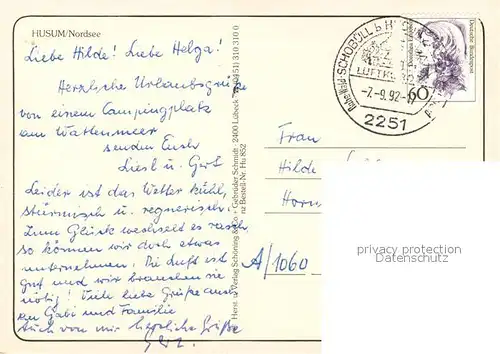 HUSUM/Nordsee
Liebe Hilde! Liebe Helga!
Herzliche Urlaubsgrüße
von einem Campingplatz
am Wattenmeer
senden Euch
Liesl u. Gert
Leider ist das Wetter kühl,
stürmisch u. regnerisch.
Zum Glück wechselt es rasch,
so können wir doch etwas
unternehmen. Die Luft ist
gut und wir brauchen sie
nötig! Viele liebe Grüße auch
an Gabi und Familie
Auch von mir herzliche Grüße
Gert.
Herst. u. Verlag Schöning & Co + Gebrüder Schmidt · 2400 Lübeck (0451) 31 03 10 0
Bestell-Nr. Hu 852
SCHOBÜLL b HUSUM
LUFTKURORT
-7.-9.92-17
2251
Deutsche Bundespost
60
Frau
Hilde
Horn
A/1060
privacy protection
Datenschutz